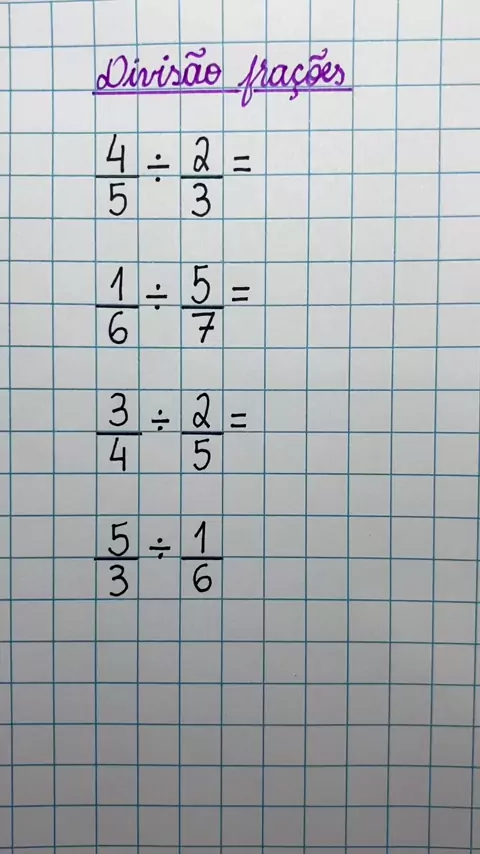 Divisão frações
4/5 ÷ 2/3 =
1/6 ÷ 5/7 =
3/4 ÷ 2/5 =
5/3 ÷ 1/6